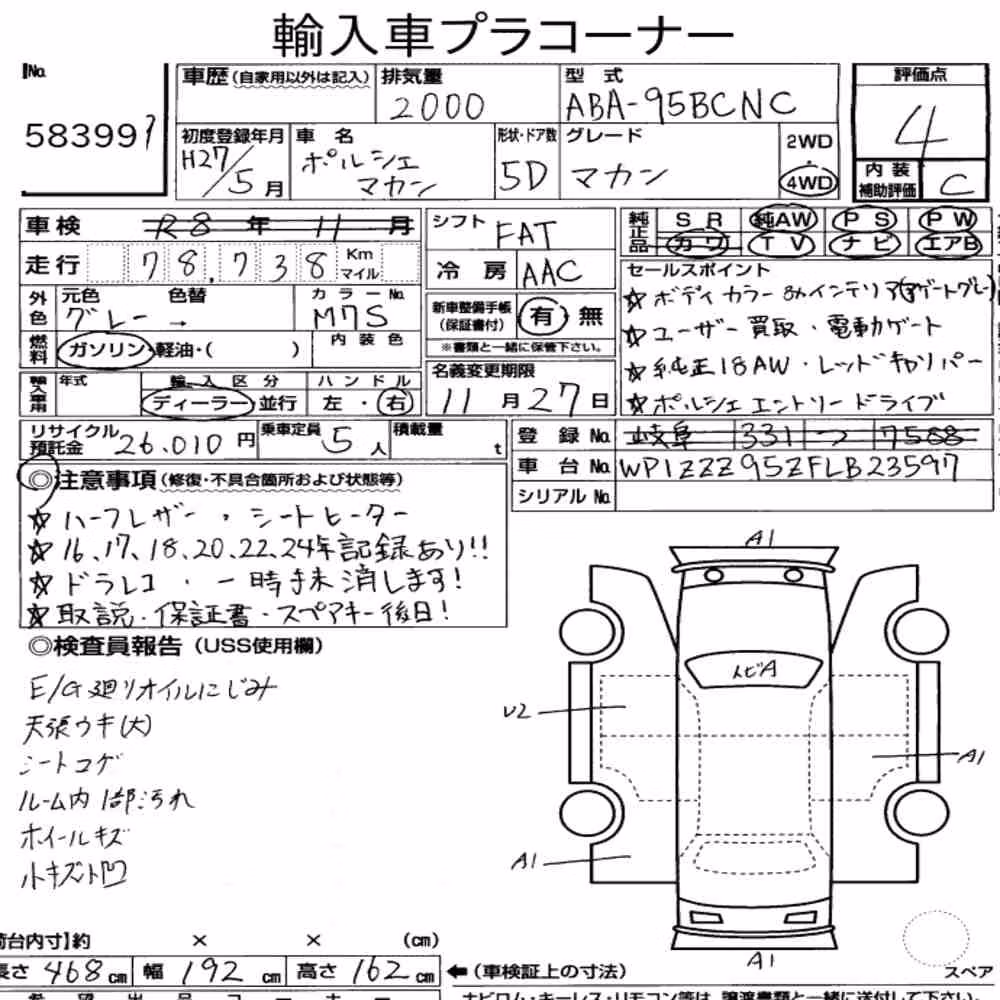 輸入車プラコーナー
No.
583997
車歴(自家用以外は記入)
排気量
2000
型式
ABA-95BCNC
評価点
4
内装補助評価
C
初度登録年月
H27/5月
車名
ポルシェ
マカン
形状・ドア数
5D
グレード
マカン
2WD
・
4WD
車検
R8年11月
走行
78,738
Km
マイル
シフト
FAT
冷房
AAC
純正品
SR 純AW PS PW
カワ TV ナビ エアB
外色
元色 色替
グレー →
カラーNo.
M7S
燃料
ガソリン・軽油・( )
内装色
新車整備手帳
(保証書付)
有 無
※書類と一緒に保管下さい。
セールスポイント
☆ボディカラー&インテリア(アゲートグレー)
☆ユーザー買取・電動ゲート
☆純正18AW・レッドキャリパー
☆ポルシェエントリードライブ
輸入車用
年式
輸入区分
ディーラー・並行
ハンドル
左・右
名義変更期限
11月27日
リサイクル預託金
26.010円
乗車定員
5人
積載量
t
登録No.
岐阜 331 つ 7588
車台No.
WP1ZZZ95ZFLB23597
シリアルNo.
◎注意事項(修復・不具合箇所および状態等)
☆ハーフレザー・シートヒーター
☆16、17、18、20、22、24年記録あり!!
☆ドラレコ・一時抹消します!
☆取説・保証書・スペアキー後日!
◎検査員報告(USS使用欄)
E/G廻りオイルにじみ
天張ウキ(大)
シートコゲ
ルーム内1部汚れ
ホイールキズ
小キズ小凹
A1
トビA
U2
A1
A1
A1
スペア
荷台内寸】約 × × (cm)
長さ 468cm 幅 192cm 高さ 162cm
←(車検証上の寸法)
希望出品コーナー
ナビロム・キーレス・リモコン等は、譲渡書類と一緒に送付して下さい。